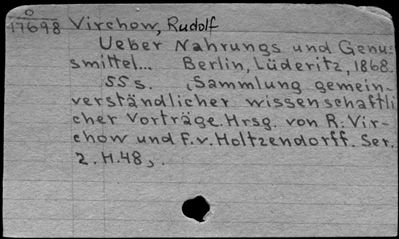 O
17698 Virchow, Rudolf
Ueber Nahrungs und Genu-
smittel... Berlin, Lüderitz, 1868.
55 s. (Sammlung gemein-
verständlicher wissenschaftli
cher Vorträge. Hrsg. von R. Vir-
chow und F. v. Holtzendorff. Ser.
2. H. 48).